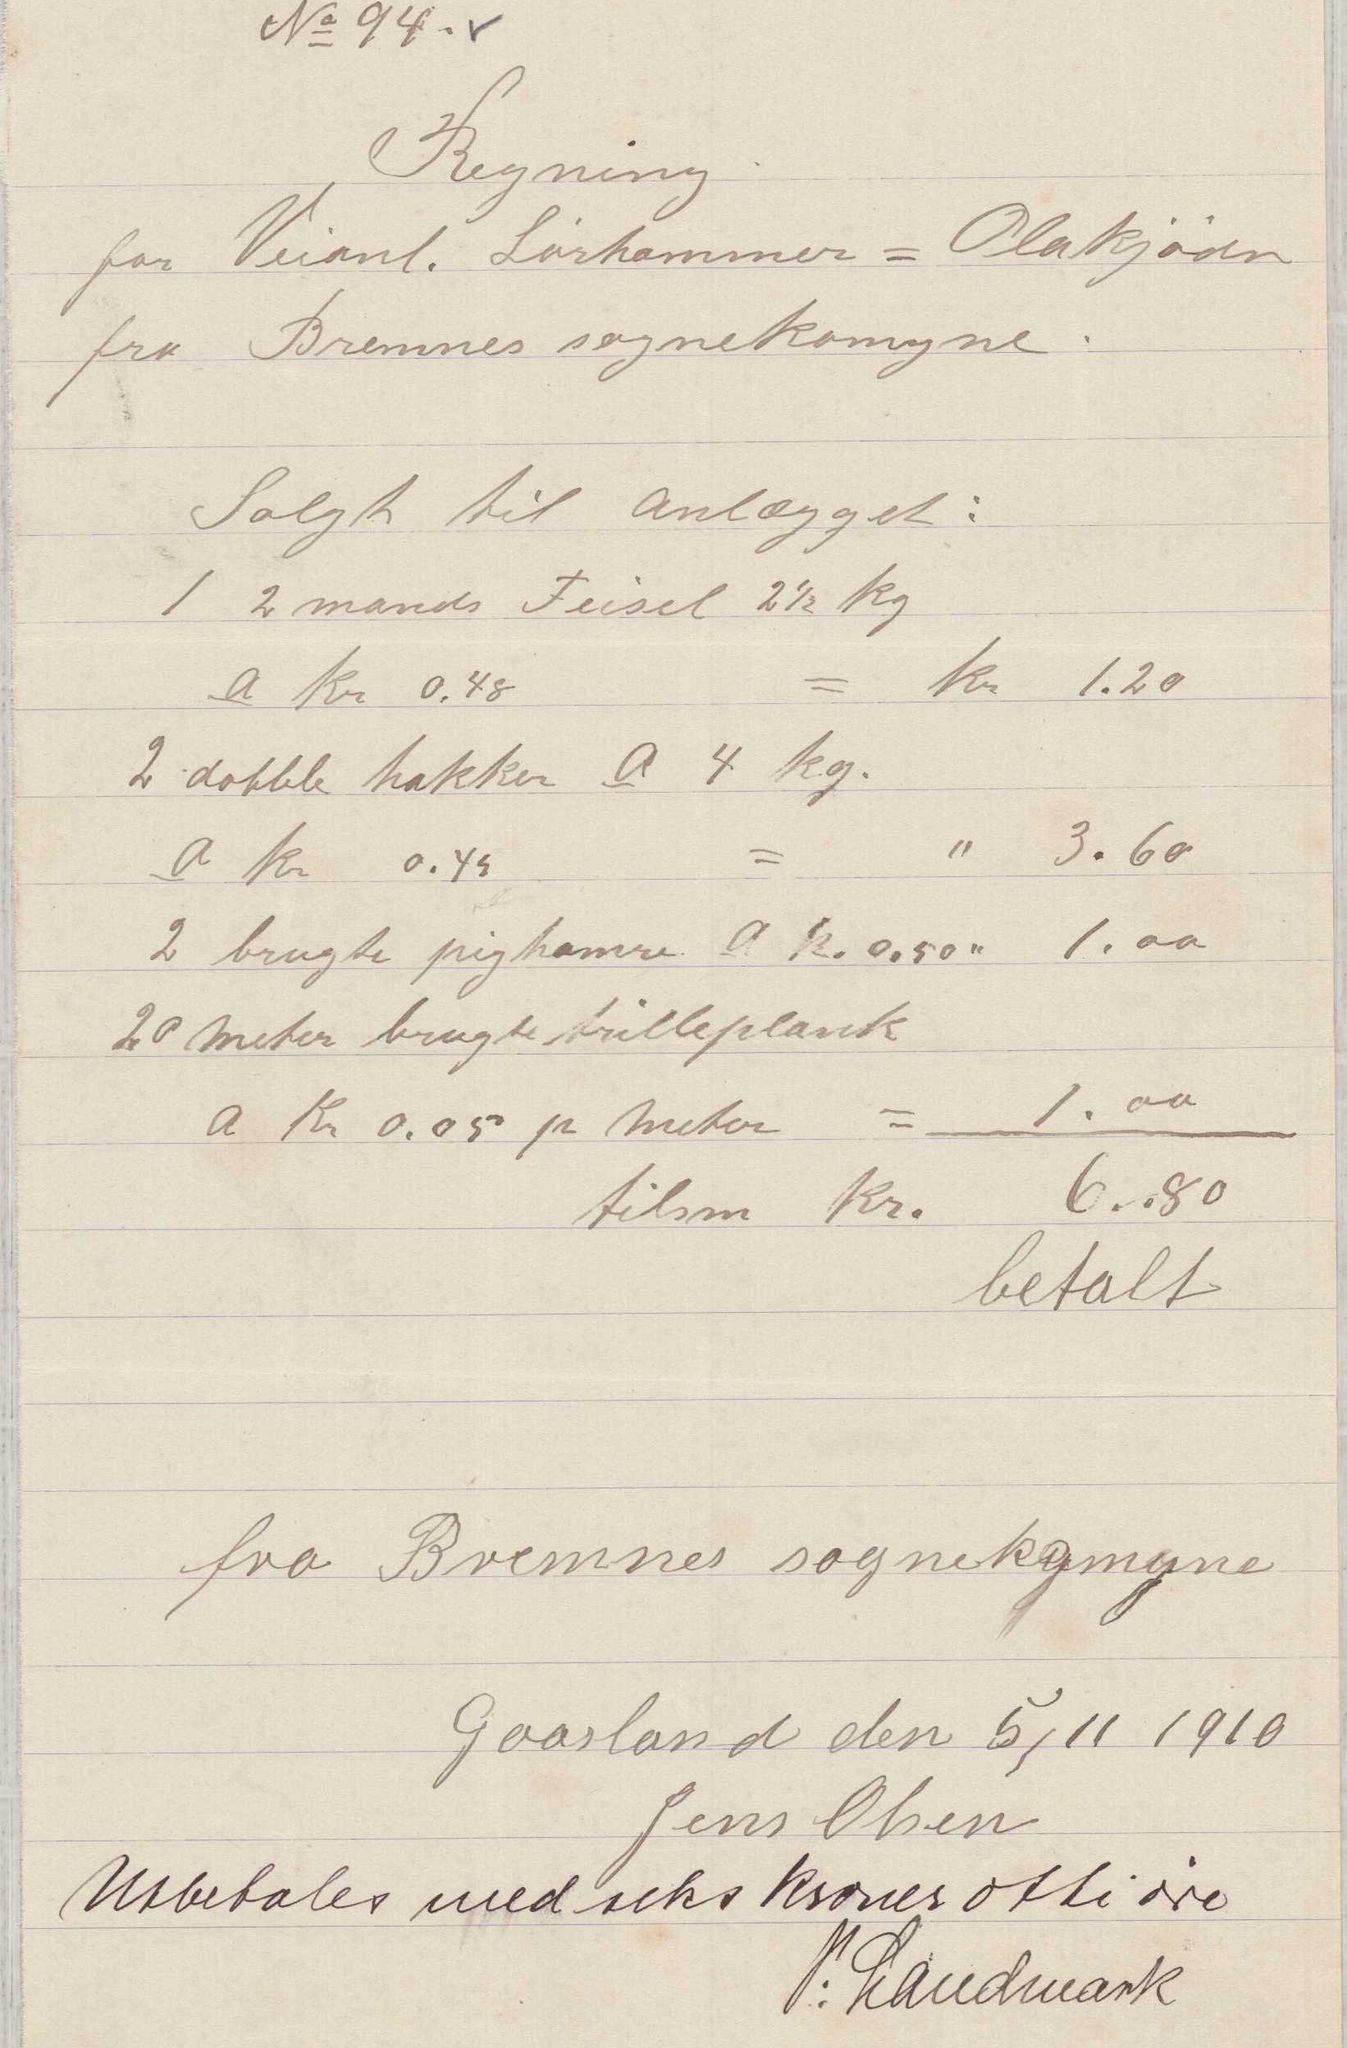 No 94. v
Regning
for Veianl. Lørhammer = Olakjødn
fra Bremnes sognekomyne.
Solgt til anlægget:
1 2 mands Feisel 2 1/2 kg
a kr 0.48 = kr 1.20
2 dobble hakker a 4 kg.
a kr 0.45 = " 3.60
2 brugte pighamre a k. 0.50 " 1.00
20 meter brugte trilleplank
a Kr 0.05 pr meter = 1.00
tilsm kr. 6.80
betalt
fra Bremnes sognekomyne
Goasland den 5/11 1910
Jens Olsen
Utbetales med seks kroner otti øre
P. Landmark